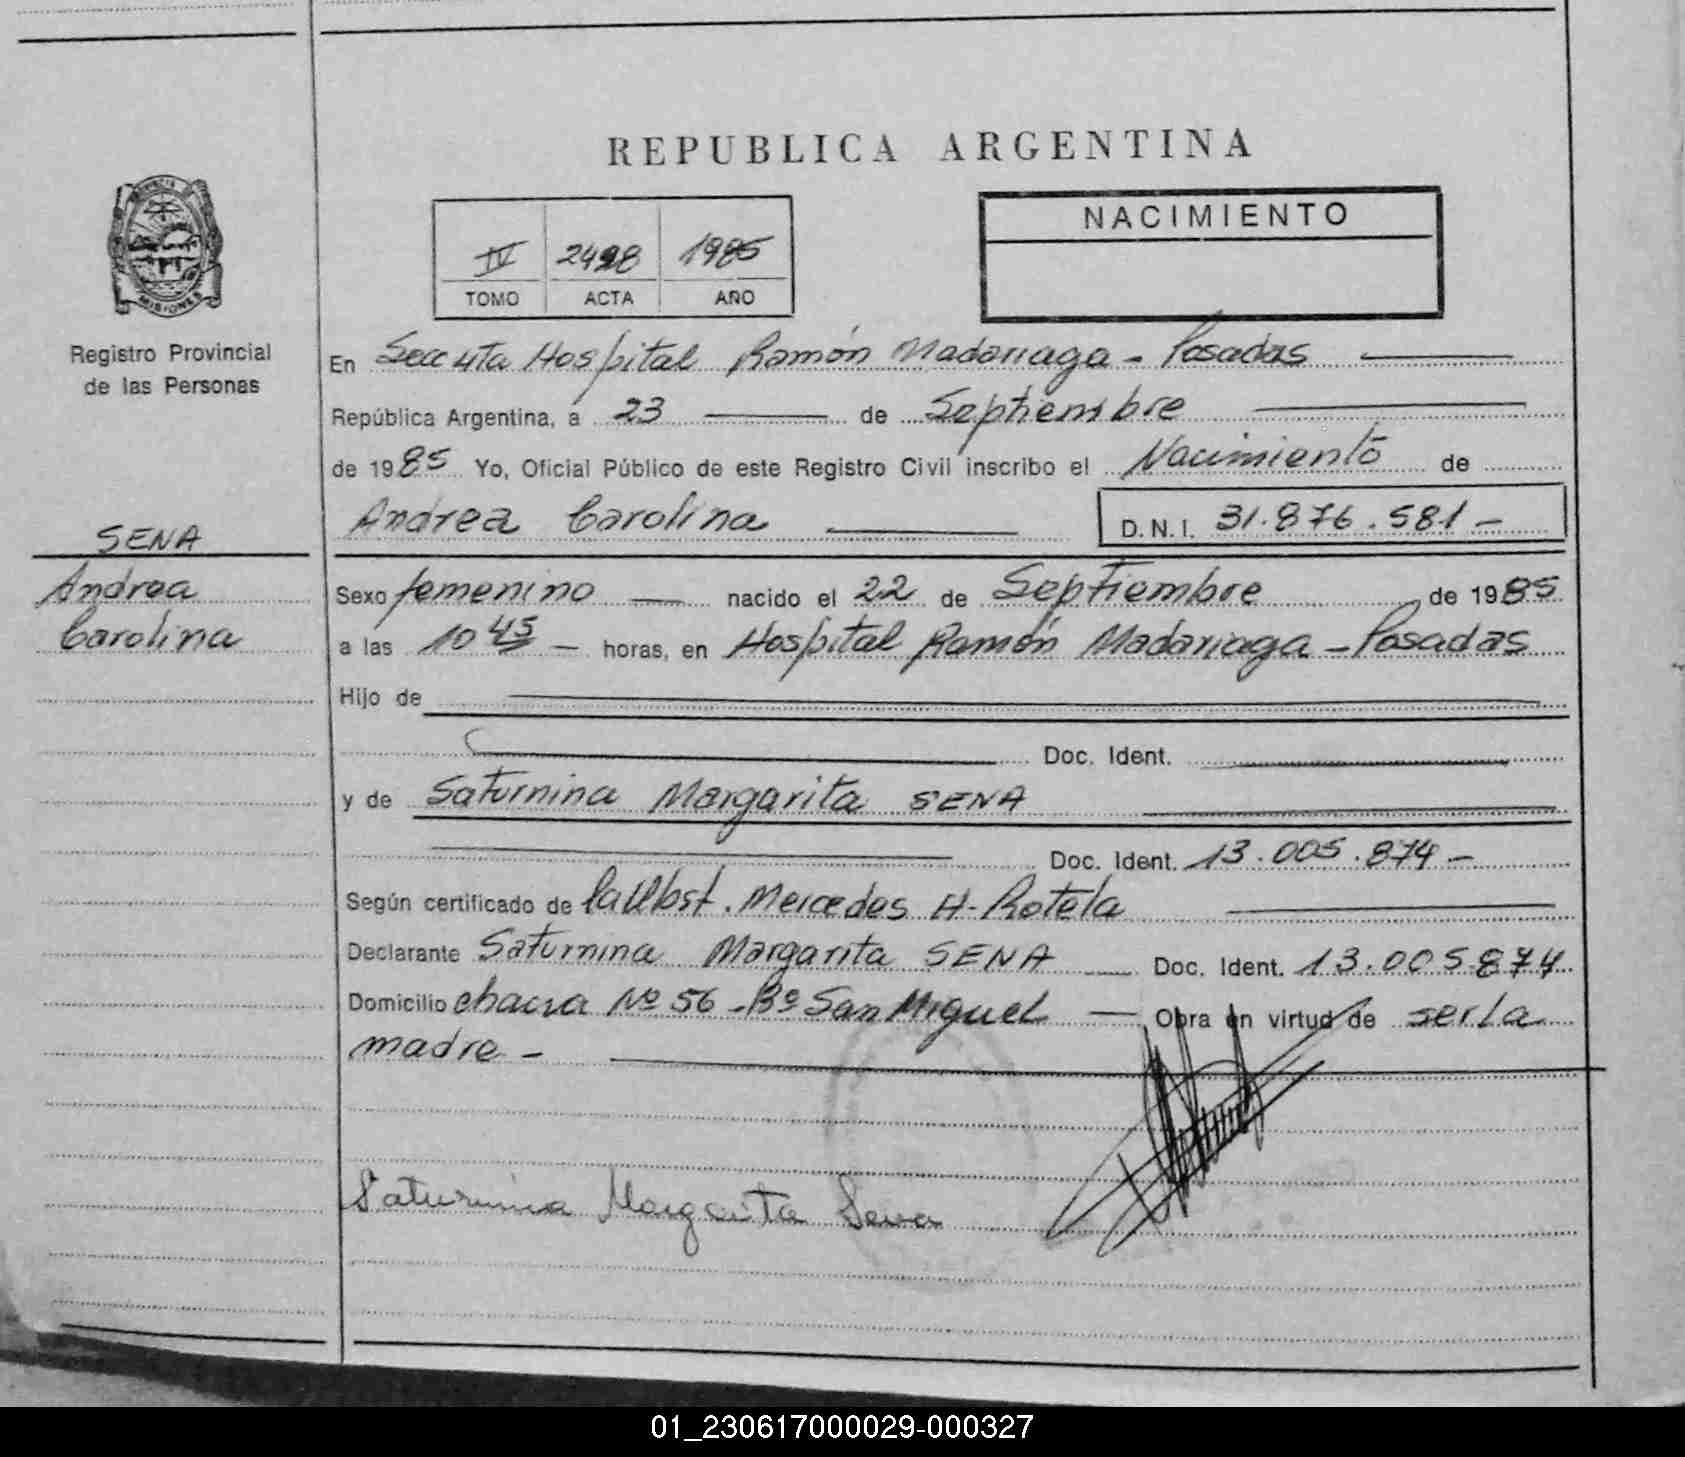 REPUBLICA ARGENTINA
NACIMIENTO
IV 2428 1985
TOMO ACTA AÑO
MISIONES
Registro Provincial
de las Personas
En Secc 4ta Hospital Ramón Madariaga - Posadas
República Argentina, a 23 de Septiembre
de 1985 Yo, Oficial Público de este Registro Civil inscribo el Nacimiento de
Andrea Carolina D.N.I. 31.876.581 -
SENA
Andrea
Carolina
Sexo femenino nacido el 22 de Septiembre de 1985
a las 10 45 - horas, en Hospital Ramón Madariaga - Posadas
Hijo de
Doc. Ident.
y de Saturnina Margarita SENA
Doc. Ident. 13.005.874 -
Según certificado de Mercedes H. Rotela
Declarante Saturnina Margarita SENA Doc. Ident. 13.005874
Domicilio chacra Nº 56 - Bº San Miguel Obra en virtud de ser la
madre -
Saturnina Margarita Sena
01_230617000029-000327